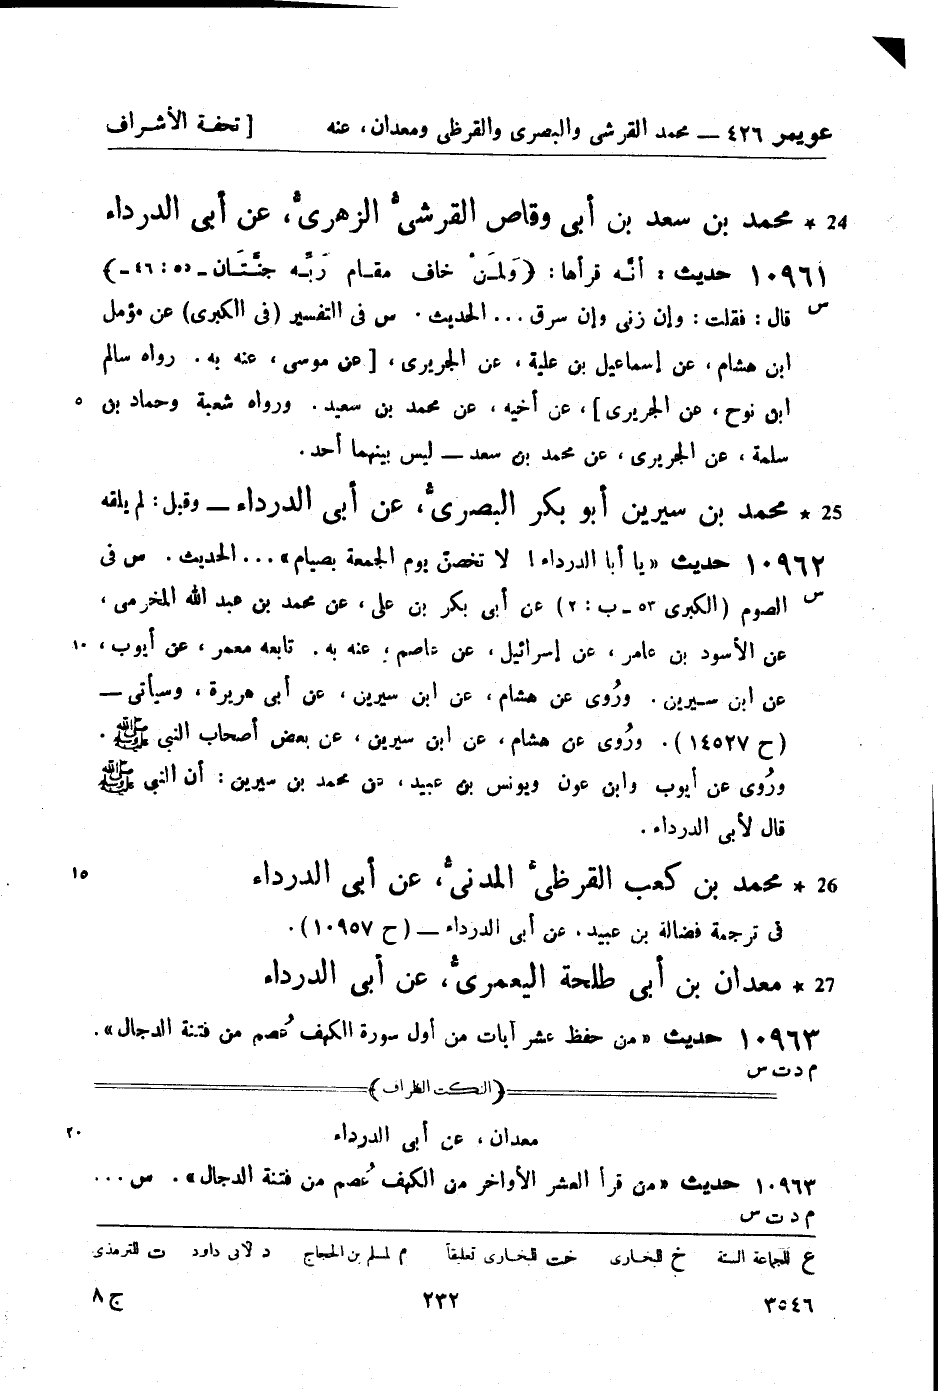 عويمر ٤٢٦ — محمد القرشى والبصرى والقرظى ومعدان، عنه [ تحفة الأشراف
24 * محمد بن سعد بن أبى وقاص القرشىُّ الزهرىُّ، عن أبى الدرداء
١٠٩٦١ حديث : أنَّه قرأها : (وَلِمَنْ خاف مقـام رَبِّـه جنَّتَـان ـ ٥٥ : ٤٦ ـ)
س
قال : فقلت : وإن زنى وإن سرق ... الحديث . س فى التفسير (فى الكبرى) عن مؤمل
ابن هشام ، عن إسماعيل بن علية ، عن الجريرى ، [عن موسى ، عنه به . رواه سالم
ابن نوح ، عن الجريرى] ، عن أخيه ، عن محمد بن سعيد . ورواه شعبة وحماد بن ٥
سلمة ، عن الجريرى ، عن محمد بن سعد — ليس بينهما أحد .
25 * محمد بن سيرين أبو بكر البصرىُّ، عن أبى الدرداء — وقيل : لم يلقه
١٠٩٦٢ حديث «يا أبا الدرداء ! لا تخصنّ يوم الجمعة بصيام» ... الحديث . س فى
س
الصوم (الكبرى ٥٣ ـ ب : ٢) عن أبى بكر بن على ، عن محمد بن عبد الله المخرمى ،
عن الأسود بن عامر ، عن إسرائيل ، عن عاصم ، عنه به . تابعه معمر ، عن أيوب ، ١٠
عن ابن سـيرين . ورُوى عن هشام ، عن ابن سيرين ، عن أبى هريرة ، وسيأتى —
(ح ١٤٥٢٧) . ورُوى عن هشام ، عن ابن سيرين ، عن بعض أصحاب النبى ﷺ .
ورُوى عن أيوب وابن عون ويونس بن عبيد ، عن محمد بن سيرين : أن النبى ﷺ
قال لأبى الدرداء .
26 * محمد بن كعب القرظىُّ المدنىُّ، عن أبى الدرداء ١٥
فى ترجمة فضالة بن عبيد ، عن أبى الدرداء — (ح ١٠٩٥٧) .
27 * معدان بن أبى طلحة اليعمرىُّ، عن أبى الدرداء
١٠٩٦٣ حديث «من حفظ عشر آيات من أول سورة الكهف عُصم من فتنة الدجال» .
م د ت س
(النكت الظراف)
معدان ، عن أبى الدرداء ٢٠
١٠٩٦٣ حديث «من قرأ العشر الأواخر من الكهف عُصم من فتنة الدجال» . س ...
م د ت س
ع للجماعة الستة خ للبخارى خت للبخارى تعليقاً م لمسلم بن الحجاج د لأبى داود ت للترمذى
٣٥٤٦ ٢٣٢ ج ٨